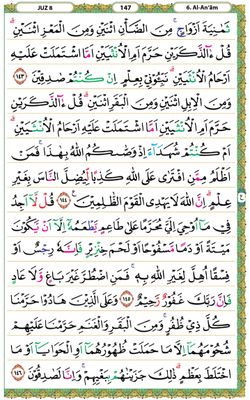 JUZ 8 147 6. Al-An'ām
ثَمٰنِيَةَ اَزْوَاجٍ ۚ مِنَ الضَّأْنِ اثْنَيْنِ وَمِنَ الْمَعْزِ اثْنَيْنِ ۗ
قُلْ ءٰۤالذَّكَرَيْنِ حَرَّمَ اَمِ الْاُنْثَيَيْنِ اَمَّا اشْتَمَلَتْ عَلَيْهِ
اَرْحَامُ الْاُنْثَيَيْنِ ۗ نَبِّـُٔوْنِيْ بِعِلْمٍ اِنْ كُنْتُمْ صٰدِقِيْنَ ١٤٣
وَمِنَ الْاِبِلِ اثْنَيْنِ وَمِنَ الْبَقَرِ اثْنَيْنِ ۗ قُلْ ءٰۤالذَّكَرَيْنِ
حَرَّمَ اَمِ الْاُنْثَيَيْنِ اَمَّا اشْتَمَلَتْ عَلَيْهِ اَرْحَامُ الْاُنْثَيَيْنِ ۗ
اَمْ كُنْتُمْ شُهَدَاۤءَ اِذْ وَصّٰىكُمُ اللّٰهُ بِهٰذَا ۚ فَمَنْ
اَظْلَمُ مِمَّنِ افْتَرٰى عَلَى اللّٰهِ كَذِبًا لِّيُضِلَّ النَّاسَ بِغَيْرِ
عِلْمٍ ۗ اِنَّ اللّٰهَ لَا يَهْدِى الْقَوْمَ الظّٰلِمِيْنَ ١٤٤ قُلْ لَّآ اَجِدُ
فِيْ مَآ اُوْحِيَ اِلَيَّ مُحَرَّمًا عَلٰى طَاعِمٍ يَّطْعَمُهٗٓ اِلَّآ اَنْ يَّكُوْنَ
مَيْتَةً اَوْ دَمًا مَّسْفُوْحًا اَوْ لَحْمَ خِنْزِيْرٍ فَاِنَّهٗ رِجْسٌ اَوْ
فِسْقًا اُهِلَّ لِغَيْرِ اللّٰهِ بِهٖ ۚ فَمَنِ اضْطُرَّ غَيْرَ بَاغٍ وَّلَا عَادٍ
فَاِنَّ رَبَّكَ غَفُوْرٌ رَّحِيْمٌ ١٤٥ وَعَلَى الَّذِيْنَ هَادُوْا حَرَّمْنَا
كُلَّ ذِيْ ظُفُرٍ ۚ وَمِنَ الْبَقَرِ وَالْغَنَمِ حَرَّمْنَا عَلَيْهِمْ
شُحُوْمَهُمَآ اِلَّا مَا حَمَلَتْ ظُهُوْرُهُمَآ اَوِ الْحَوَايَآ اَوْ مَا
اخْتَلَطَ بِعَظْمٍ ۗ ذٰلِكَ جَزَيْنٰهُمْ بِبَغْيِهِمْ ۚ وَاِنَّا لَصٰدِقُوْنَ ١٤٦